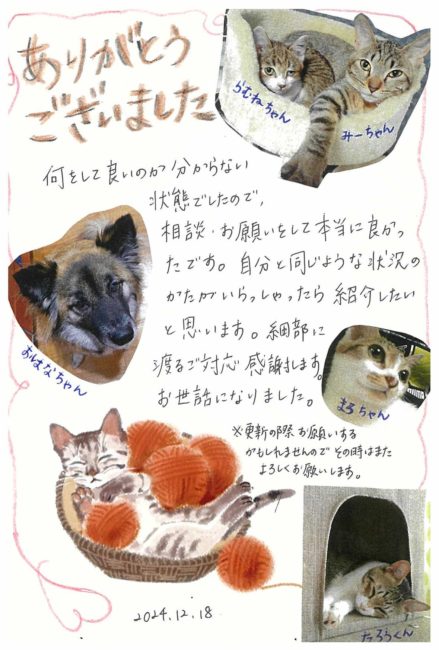 ありがとう
ございました
らむねちゃん
みーちゃん
何をして良いのか分からない
状態でしたので、
相談・お願いをして本当に良かっ
たです。自分と同じような状況の
かたがいらっしゃったら紹介したい
と思います。細部に
渡るご対応感謝します。
お世話になりました。
おはなちゃん
まろちゃん
※更新の際お願いする
かもしれませんので その時はまた
よろしくお願いします。
2024.12.18
たろうくん